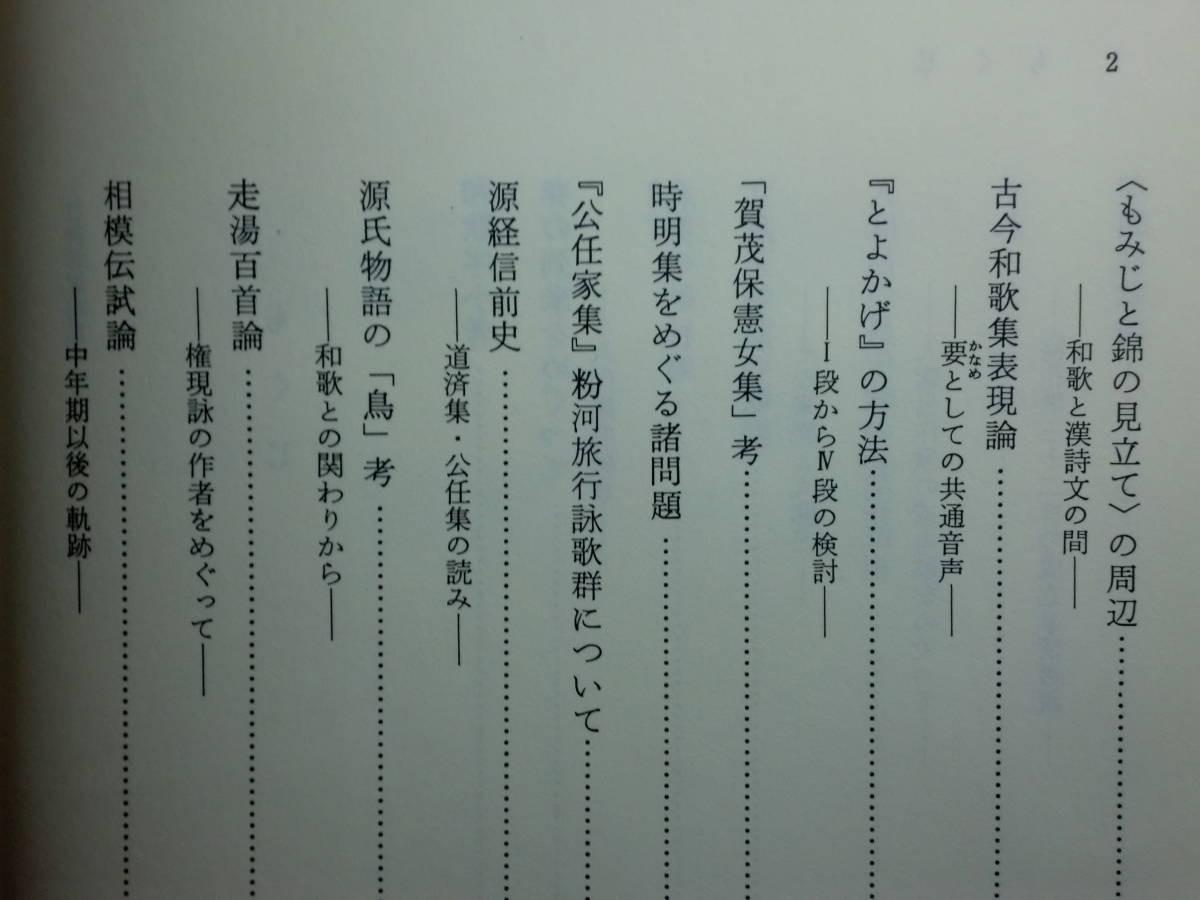 2
〈もみじと錦の見立て〉の周辺……………………
――和歌と漢詩文の間――
古今和歌集表現論……………………
――要としての共通音声――
かなめ
『とよかげ』の方法……………………
――Ⅰ段からⅣ段の検討――
「賀茂保憲女集」考……………………
時明集をめぐる諸問題……………………
『公任家集』粉河旅行詠歌群について……………………
源経信前史……………………
――道済集・公任集の読み――
源氏物語の「鳥」考……………………
――和歌との関わりから――
走湯百首論……………………
――権現詠の作者をめぐって――
相模伝試論……………………
――中年期以後の軌跡――